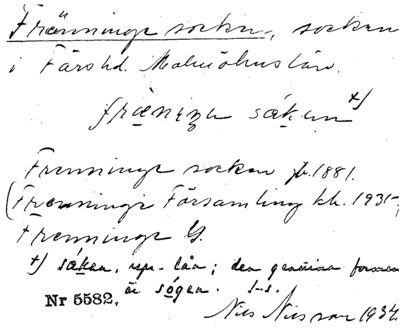 Fränninge socken, socken
i Färs hd. Malmöhus län.
fræniŋə såken x)
Frenninge socken jb. 1881.
(Frenninge Församling kb. 1931-,
Frenninge G.
x) såken, repr. lån; den genuina formen
Nr 5582, är sògen. I-s.
Nils Nilsson 1934.